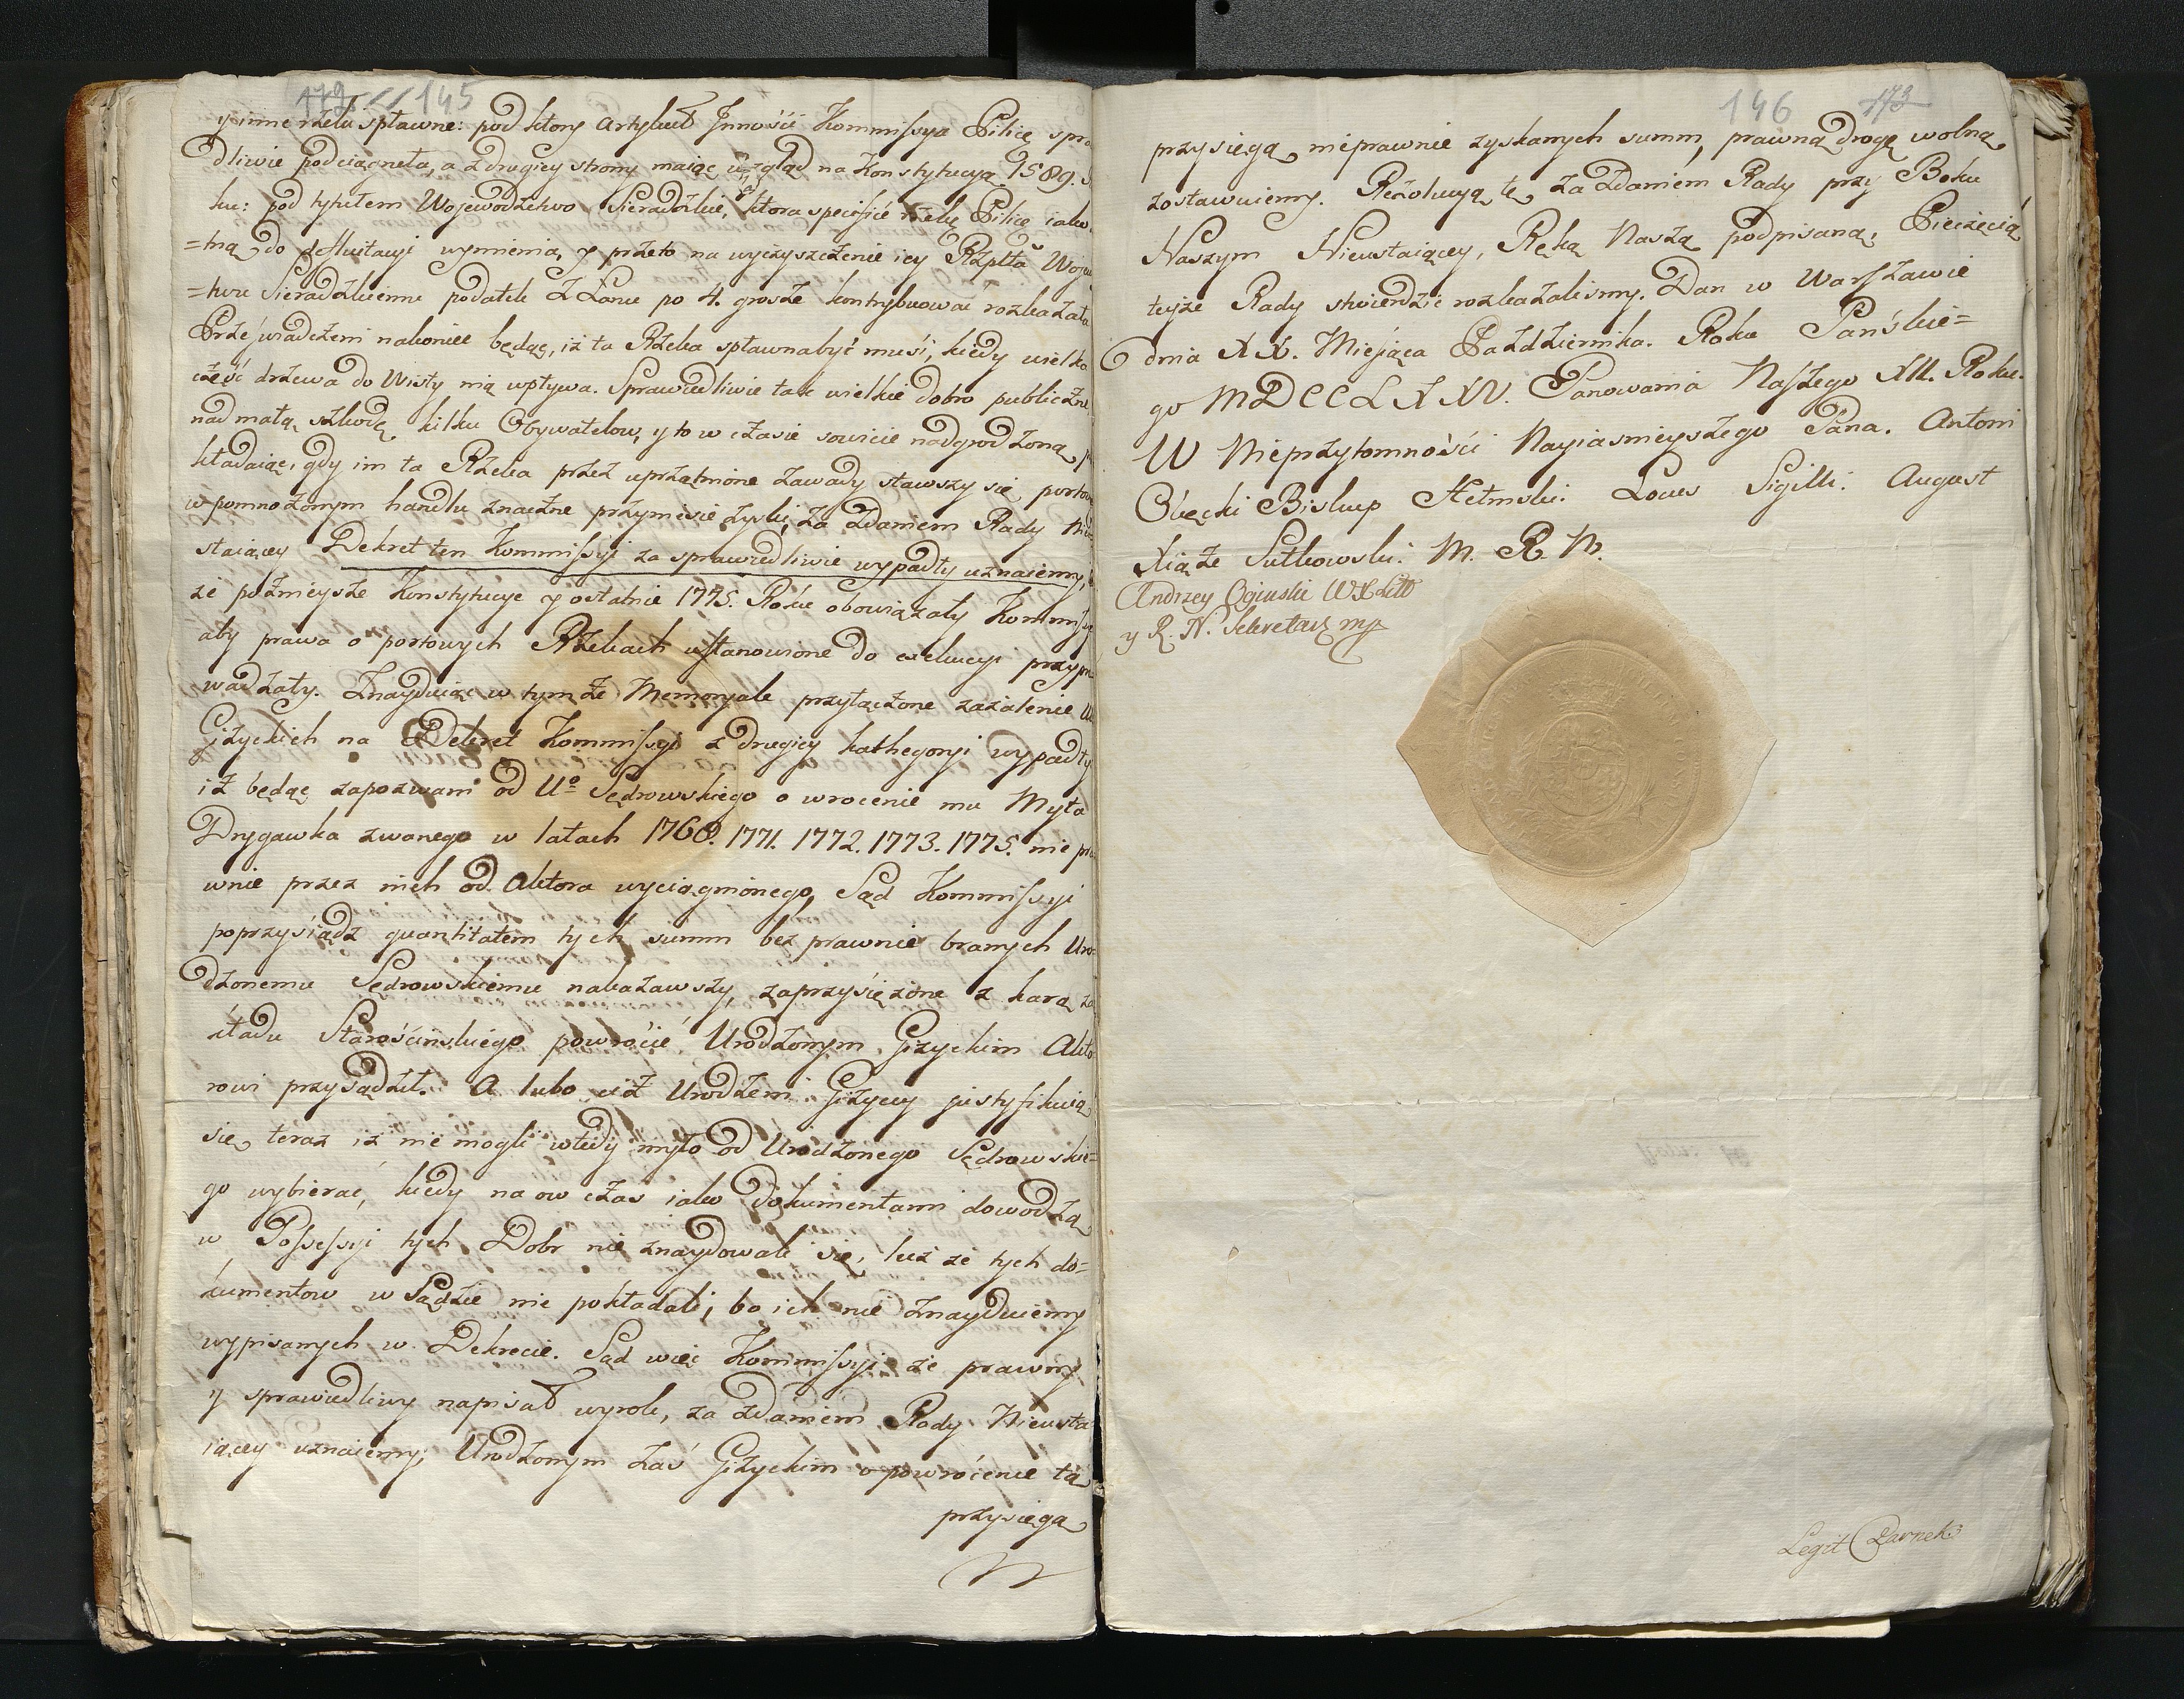 172 145
y inne rzeki spławne: pod ktory Artykuł Jnność Kommissya Pilicę spra
dliwie podciągneła, a z drugiey strony maiąc wzgląd na Konstytucyą 1589.
ku: pod tytułem Wojewodztwo Sieradzkie, ktora specifice rzekę Pilicę iako
=tną do defluitacyi wymienia, y przeto na wyczyszczenie iey Rzplta Wojew
=twu Sieradzkiemu podatek z Łanu po 4. grosze kontrybuować rozkazała
Przeświadczeni nakoniec będąc, iż ta Rzeka spławna być musi, kiedy wielka
część drzewa do Wisły nią wpływa. Sprawiedliwie tak wielkie dobro publiczne
nad małą szkodę kilku Obywatelow, y to w czasie sowicie nadgrodzoną
kładaiąc, gdy im ta Rzeka przez uprzątnione zawady stawszy się portow
w pomnożonym handlu znaczne przyniesie zyski, za zdaniem Rady Nieu
staiącey Dekret ten Kommissyi za sprawiedliwie wypadły uznaiemy,
że pożnieysze Konstytucye y ostatnie 1775. Roku obowiązały Kommissy
aby prawa o portowych Rzekach ustanowione do exekucyi przypro
wadzały. Znayduiąc w tymże Memoryale przyłączone zażalenie U
Giżyckich na Dekret Kommissyi z drugiey kathegoryi wypadły
iż będąc zapozwani od Uo Sędrowskiego o wrocenie mu Myta
Drygawka zwanego w latach 1768. 1771. 1772. 1773. 1775. nie pra
wnie przez nich od Aktora wyciągnionego, Sąd Kommissyi
poprzysiądz quantitatem tych summ bez prawnie branych Uro=
dzonemu Sędrowskiemu nakazawszy, zaprzysiężone z karą za
kładu Starościnskiego powrócić Urodzonym Giżyckim Akto
rowi przysądził. A lubo iż Urodzeni Giżyccy justyfikuią
się teraz iż nie mogli wtedy myto od Urodzonego Sędrowskie=
go wybierać, kiedy na ow czas iako Dokumentami dowodzą
w Possessyi tych Dobr nie znaydowali się, lecz że tych do=
kumentow w Sądzie nie pokładali, bo ich nie znayduiemy
wypisanych w Dekrecie. Sąd więc Kommissyi że prawny
y sprawiedliwy napisał wyrok, za zdaniem Rady Nieusta
iącey uznaiemy, Urodzonym zaś Giżyckim o powrócenie tą
przysięgą
146 173
przysięgą nieprawnie zyskanych summ, prawną drogę wolną
zostawuiemy. Rezolucyą tę za zdaniem Rady przy Boku
Naszym Nieustaiącey, Ręką Naszą podpisaną, Pieczęcią
teyże Rady stwierdzić rozkazaliśmy. Dan w Warszawie
dnia XX. Miesiąca Pazdziernika. Roku Pańskie=
go MDCCLXXV. Panowania Naszego XII. Roku.
W Nieprzytomności Nayiasnieyszego Pana. Antoni
Okęcki Biskup Chełmski. Locus Sigilli. August
Xiąże Sułkowski. M. R. N.
Andrzey Oginski W X Litt
y R. N. Sekretarz mp
Legit Czarnek